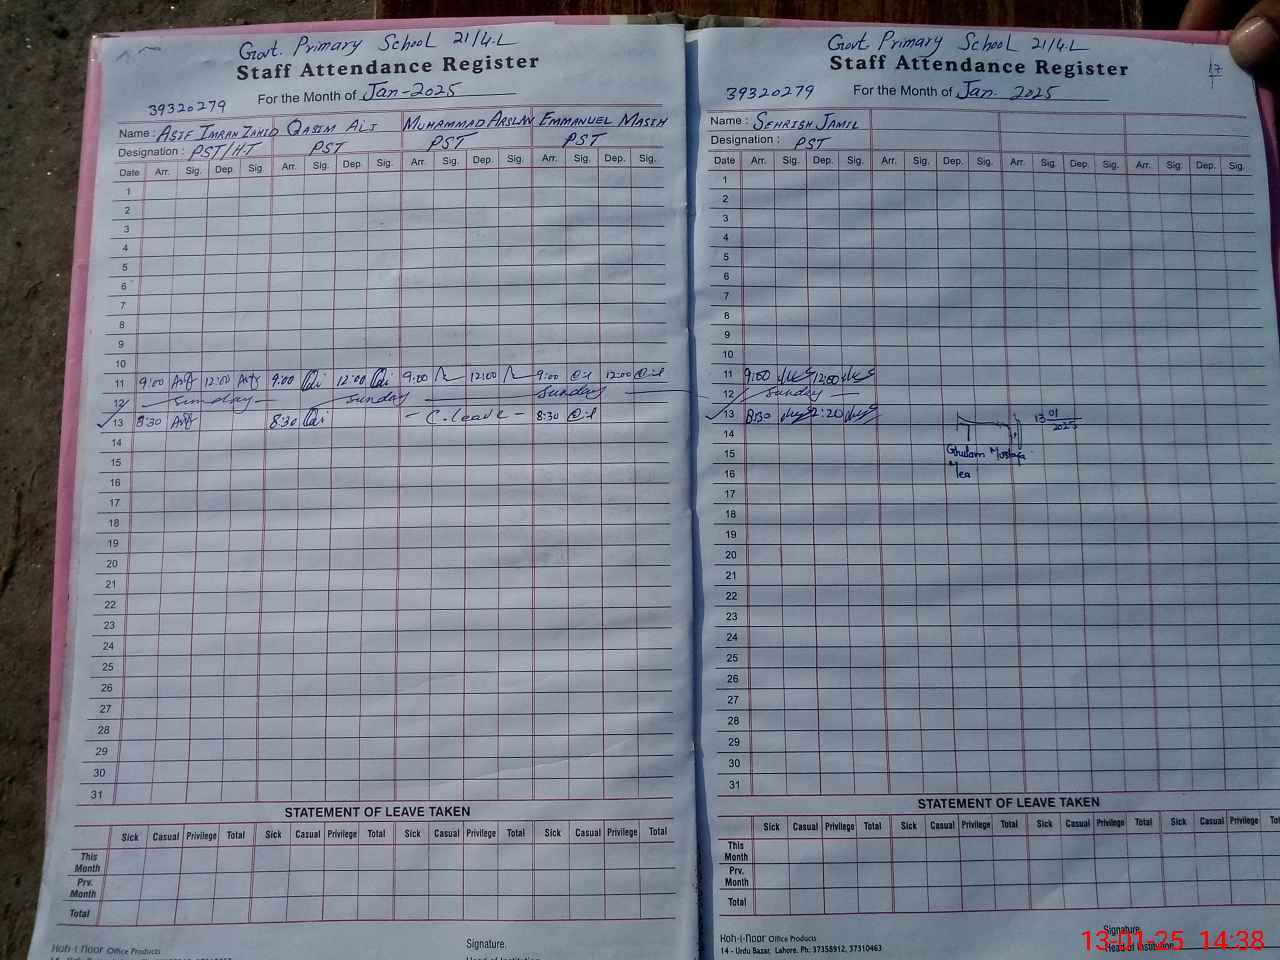 Govt. Primary School 21/4.L
Staff Attendance Register
39320279 For the Month of Jan-2025
Name : ASIF IMRAN ZAHID QASIM ALI MUHAMMAD ARSLAN EMMANUEL MASIH
Designation : PST/HT PST PST PST
Date Arr. Sig. Dep. Sig. Arr. Sig. Dep. Sig. Arr. Sig. Dep. Sig. Arr. Sig. Dep. Sig.
1
2
3
4
5
6
7
8
9
10
11 9:00 12:00 9:00 12:00 9:00 12:00 9:00 12:00
12 Sunday Sunday Sunday
13 8:30 8:30 - C.leave - 8:30
14
15
16
17
18
19
20
21
22
23
24
25
26
27
28
29
30
31
STATEMENT OF LEAVE TAKEN
Sick Casual Privilege Total Sick Casual Privilege Total Sick Casual Privilege Total Sick Casual Privilege Total
This Month
Prv. Month
Total
Signature.
Koh-i-noor Office Products
Govt. Primary School 21/4.L
Staff Attendance Register
17
39320279 For the Month of Jan. 2025
Name : SEHRISH JAMIL
Designation : PST
Date Arr. Sig. Dep. Sig. Arr. Sig. Dep. Sig. Arr. Sig. Dep. Sig. Arr. Sig. Dep. Sig.
1
2
3
4
5
6
7
8
9
10
11 9:00 12:00
12 Sunday
13 8:30 2:20 13 01 2025
14
15 Ghulam Mustafa
16 Mea
17
18
19
20
21
22
23
24
25
26
27
28
29
30
31
STATEMENT OF LEAVE TAKEN
Sick Casual Privilege Total Sick Casual Privilege Total Sick Casual Privilege Total Sick Casual Privilege
This Month
Prv. Month
Total
Signature.
Koh-i-noor Office Products
Head of Institution
14 - Urdu Bazar, Lahore. Ph: 37358912, 37310463
13-01-25 14:38